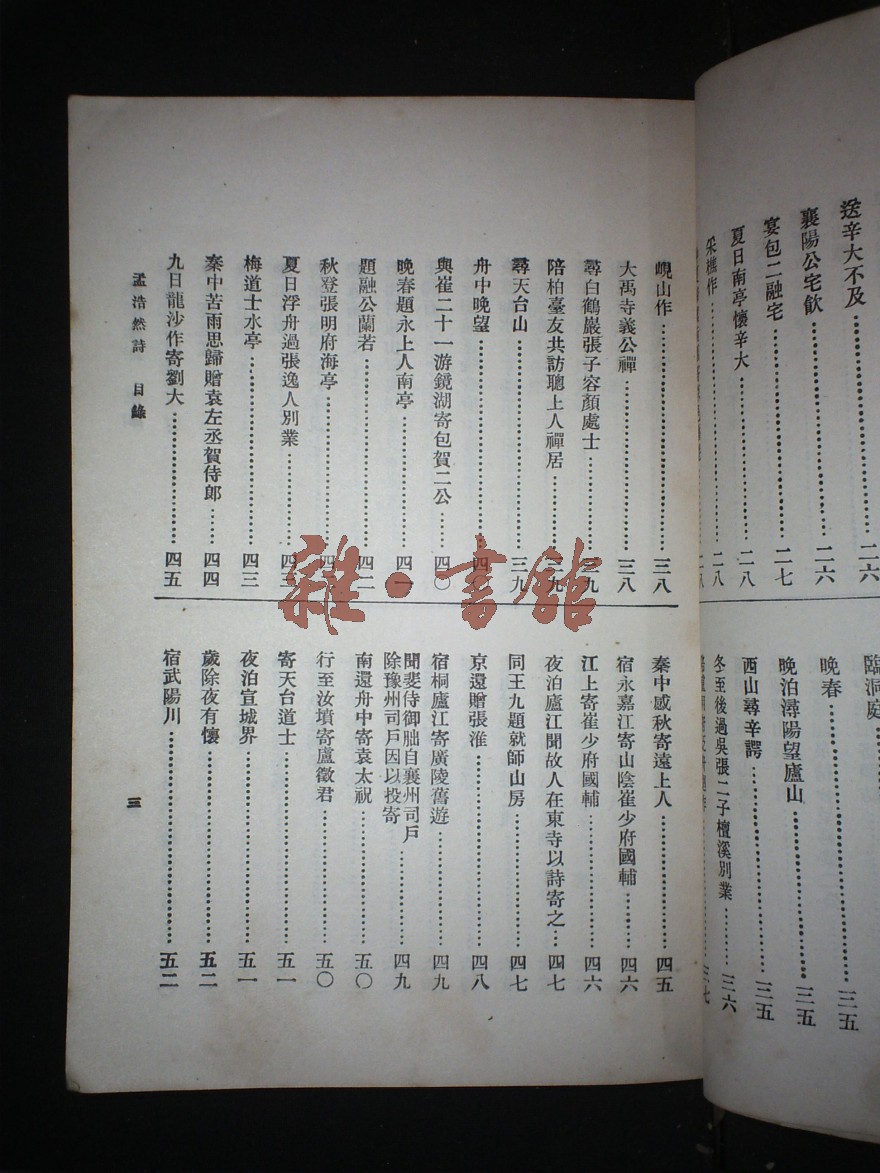 送辛大不及……二六
襄陽公宅飲……二六
宴包二融宅……二七
夏日南亭懷辛大……二八
采樵作……二八
臨洞庭
晚春……三五
晚泊潯陽望廬山……三五
西山尋辛諤……三五
冬至後過吳張二子檀溪別業……三六
三七
峴山作……三八
大禹寺義公禪……三八
尋白鶴巖張子容顏處士……三九
陪柏臺友共訪聰上人禪居……三九
尋天台山……三九
舟中晚望……四
與崔二十一游鏡湖寄包賀二公……四〇
晚春題永上人南亭……四一
題融公蘭若……四二
秋登張明府海亭……四
夏日浮舟過張逸人別業……四三
梅道士水亭……四三
秦中苦雨思歸贈袁左丞賀侍郎……四四
九日龍沙作寄劉大……四五
秦中感秋寄遠上人……四五
宿永嘉江寄山陰崔少府國輔……四六
江上寄崔少府國輔……四六
夜泊廬江聞故人在東寺以詩寄之……四七
同王九題就師山房……四七
京還贈張淮……四八
宿桐廬江寄廣陵舊遊……四九
聞裴侍御朏自襄州司戶
除豫州司戶因以投寄……四九
南還舟中寄袁太祝……五〇
行至汝墳寄盧徵君……五〇
寄天台道士……五一
夜泊宣城界……五一
歲除夜有懷……五二
宿武陽川……五二
孟浩然詩 目錄
三
雜·書館